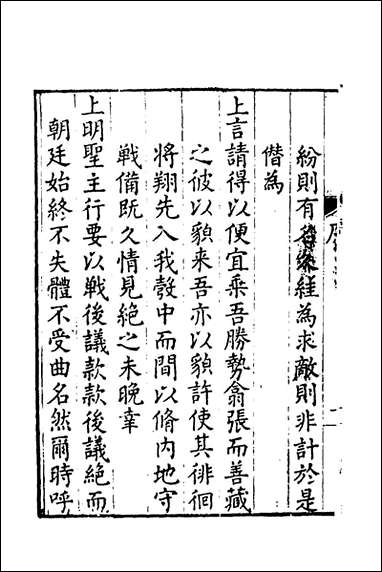 紛則有名經為求敵則非計於是
僭為
上言請得以便宜乘吾勝勢翕張而善藏
之彼以貌來吾亦以貌許使其徘徊
将翔先入我彀中而間以脩內地守
戰備既久情見絕之未晚幸
上明聖主行要以戰後議款款後議絕而
朝廷始終不失體不受曲名然爾時呼